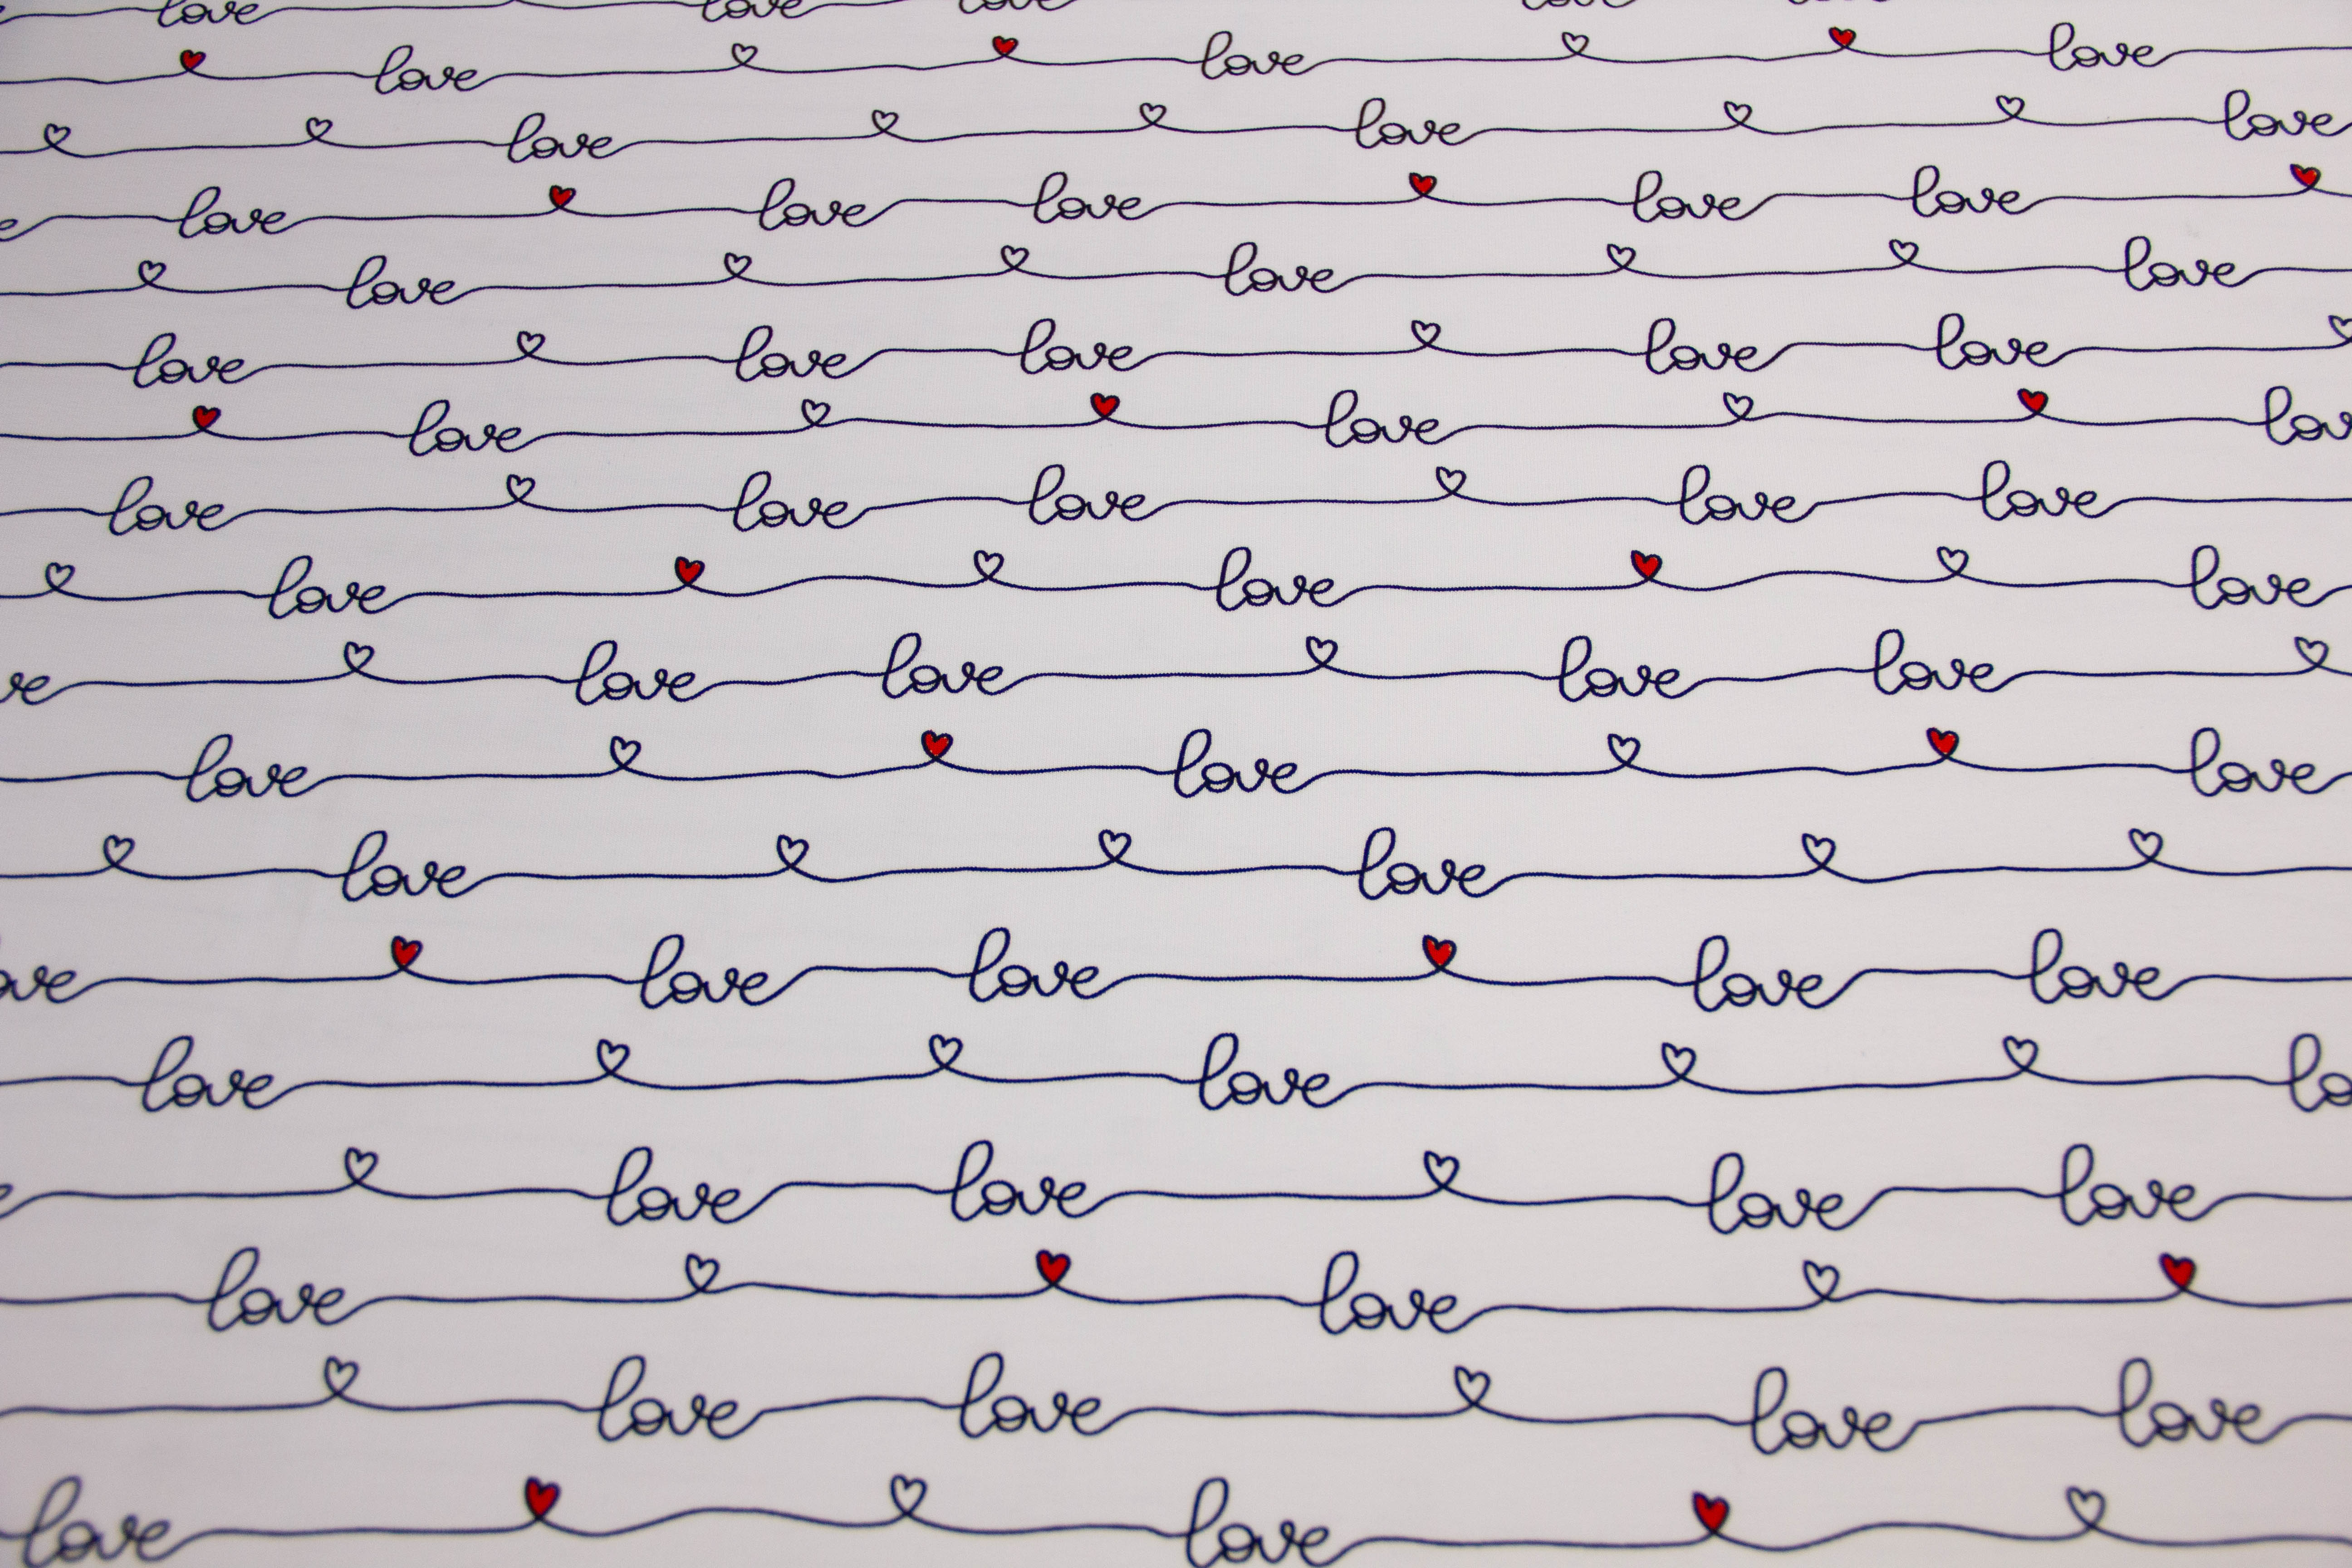 love love love
love love love
love love love
love love love love love
love love love
love love love love love
love love lov
love love love love love
love love love
ve love love love love
love love love
love love
ove love love love love
love love lo
love love love love
love love
love love love love
love love